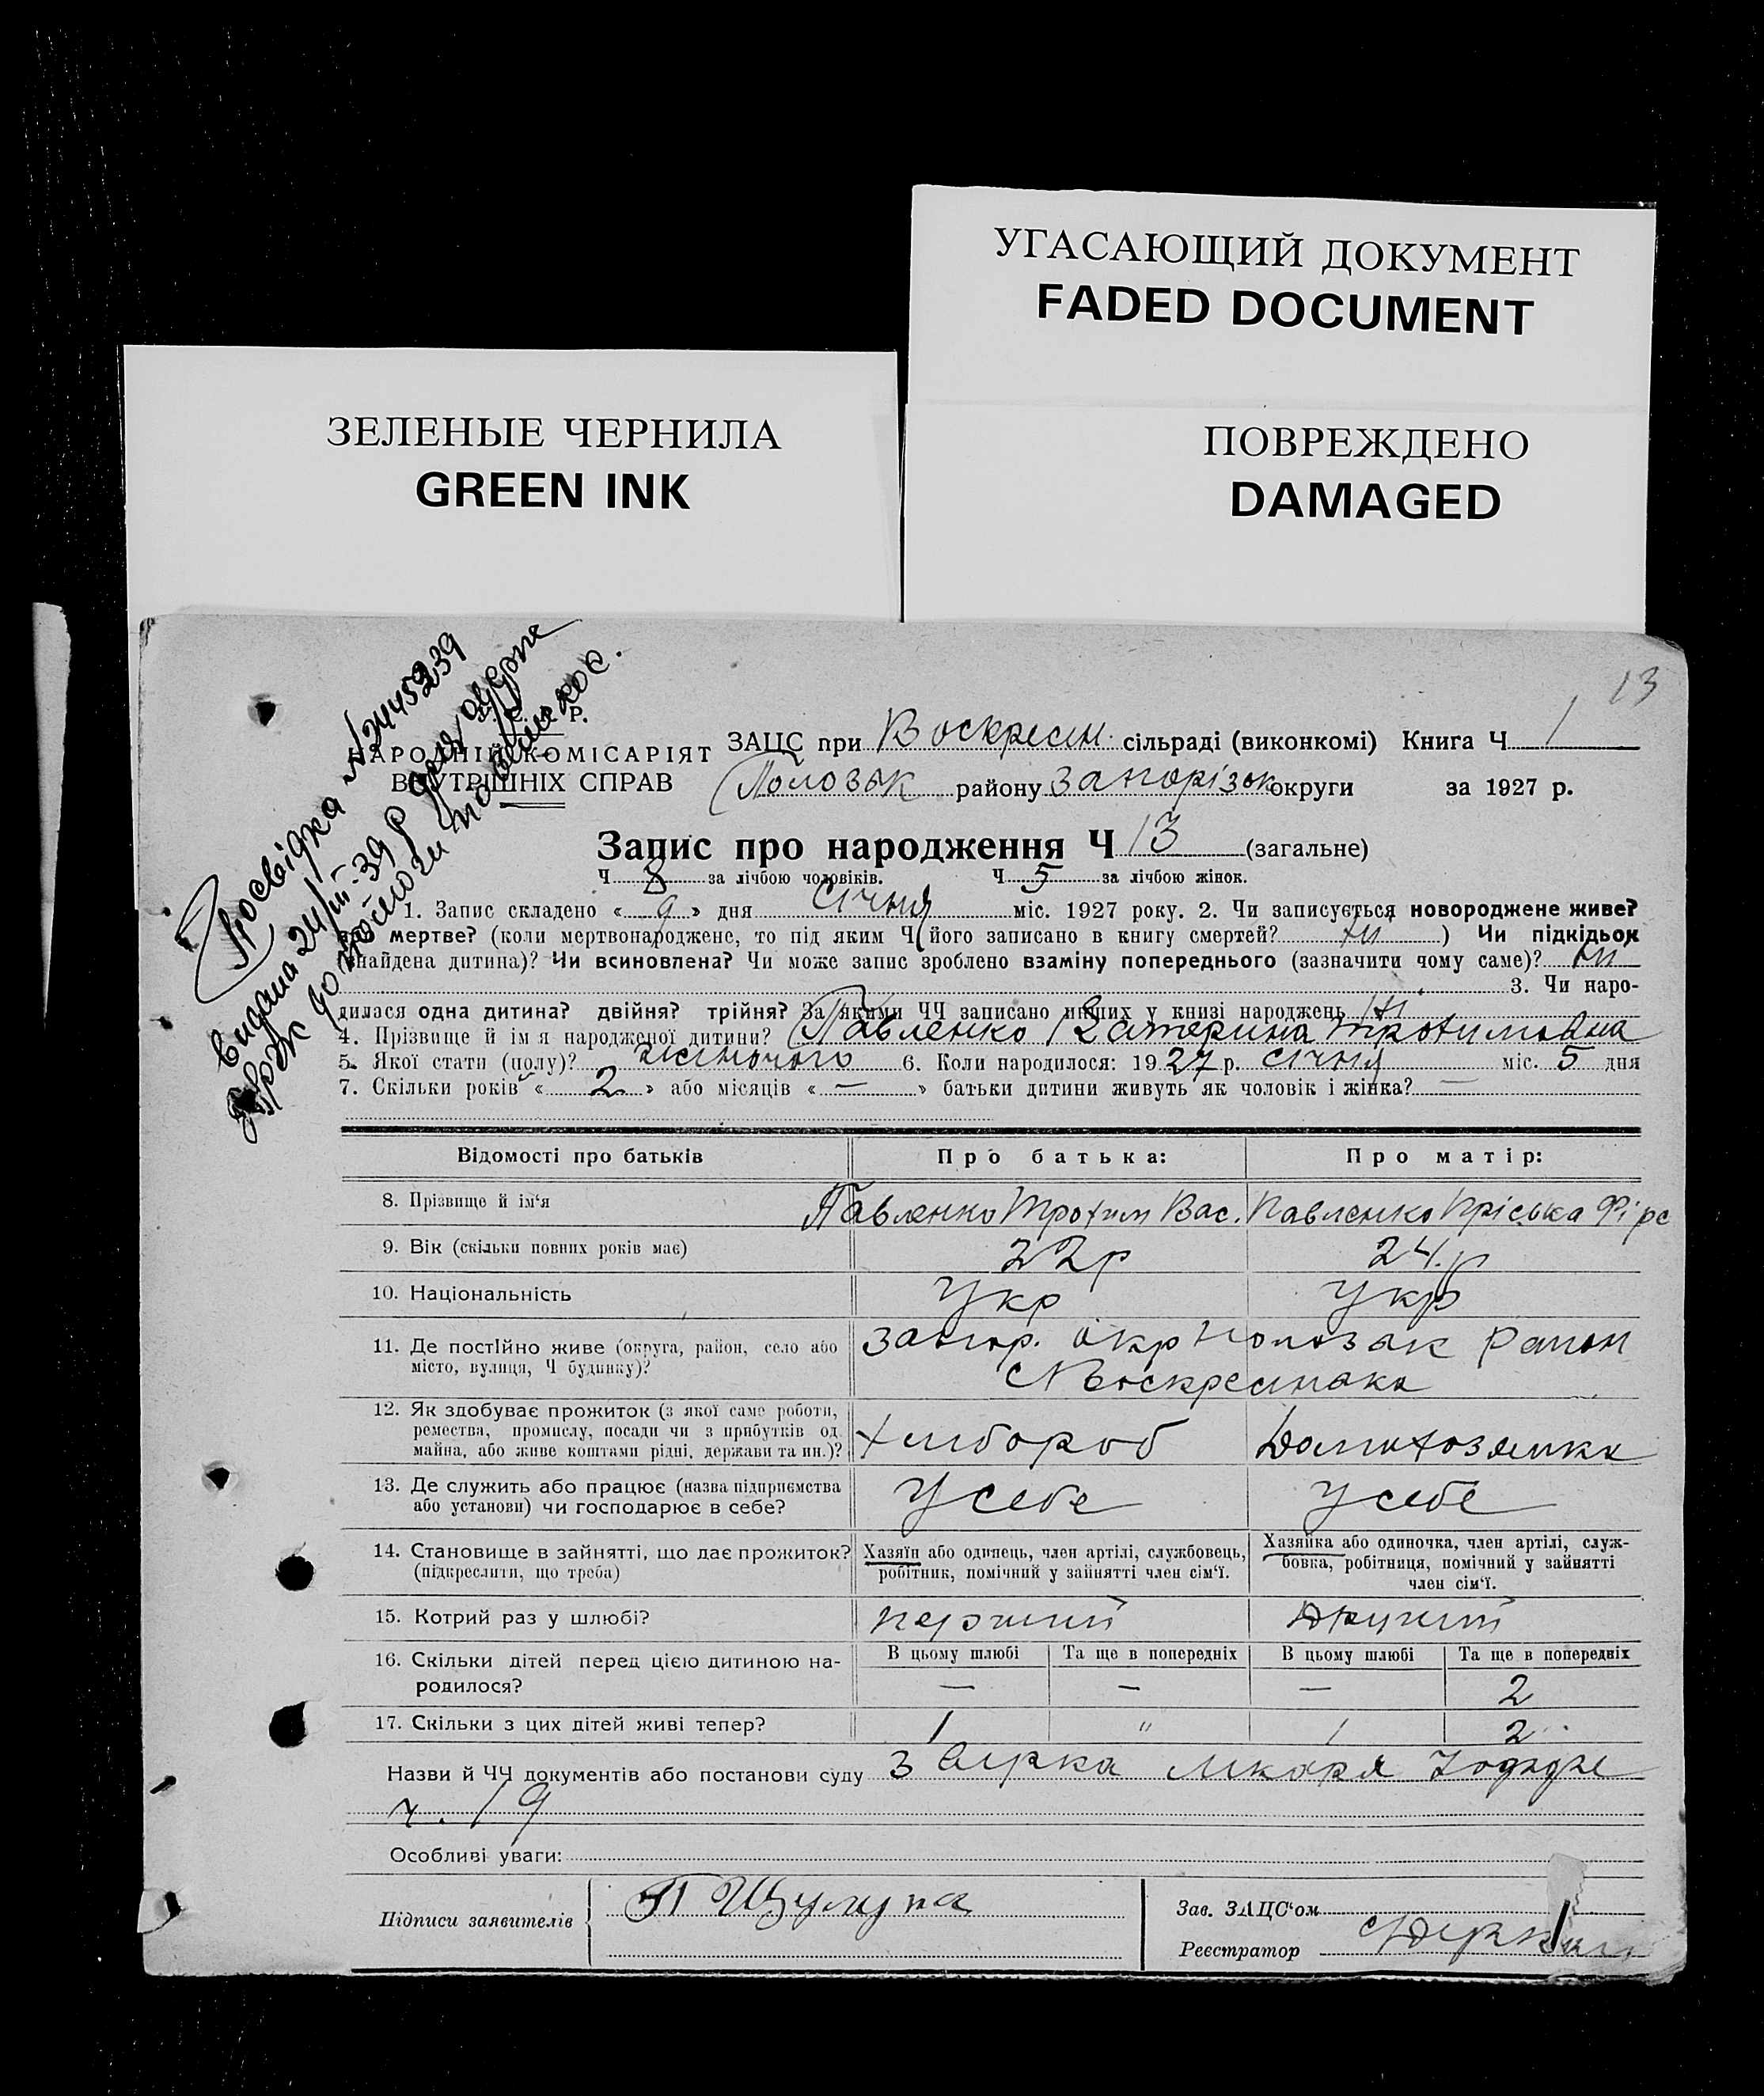 УГАСАЮЩИЙ ДОКУМЕНТ
FADED DOCUMENT
ЗЕЛЕНЫЕ ЧЕРНИЛА
GREEN INK
ПОВРЕЖДЕНО
DAMAGED
13
Посвідка №2445239
Видана 24/III-39 р для
допомоги по
Р.
НАРОДНІЙ КОМІСАРІЯТ
ВНУТРІШНІХ СПРАВ
ЗАЦС при Воскресен. сільраді (виконкомі) Книга Ч 1
Пологзьк району Запорізок округи за 1927 р.
Запис про народження Ч 13 (загальне)
Ч 8 за лічбою чоловіків. Ч 5 за лічбою жінок.
1. Запис складено « 9 » дня Січня міс. 1927 року. 2. Чи записується новороджене живе?
або мертве? (коли мертвонароджене, то під яким Ч його записано в книгу смертей? ні ) Чи підкідьок
(знайдена дитина)? Чи всиновлена? Чи може запис зроблено взаміну попереднього (зазначити чому саме)? ні
3. Чи наро-
дилася одна дитина? двійня? трійня? За якими ЧЧ записано инших у книзі народжень ні
4. Прізвище й ім я народженої дитини? Павленко Катерина Трохимовна
5. Якої стати (полу)? жіночого 6. Коли народилося: 1927 р. січня міс. 5 дня
7. Скільки років « 2 » або місяців « — » батьки дитини живуть як чоловік і жінка? —
Відомості про батьків Про батька: Про матір:
8. Прізвище й ім‘я Павленко Трохим Вас. Павленко Пріська Фірс
9. Вік (скільки повних років має) 22 р 24. р
10. Національність Укр Укр
11. Де постійно живе (округа, район, село або Запор. окр Пологзьк район
місто, вулиця, Ч будинку)? с Воскресенака
12. Як здобуває прожиток (з якої саме роботи,
ремества, промислу, посади чи з прибутків од
майна, або живе коштами рідні, держави та ин.)? Хлібороб Домохозяика
13. Де служить або працює (назва підприємства У себе У себе
або установи) чи господарює в себе?
14. Становище в зайнятті, що дає прожиток? Хазяїн або одинець, член артілі, службовець, Хазяйка або одиночка, член артілі, служ-
(підкреслити, що треба) робітник, помічний у зайнятті член сім‘ї. бовка, робітниця, помічний у зайнятті
член сім‘ї.
15. Котрий раз у шлюбі? перший Другий
16. Скільки дітей перед цією дитиною на- В цьому шлюбі Та ще в попередніх В цьому шлюбі Та ще в попередніх
родилося? — — — 2
17. Скільки з цих дітей живі тепер? 1 " 1 2
Назви й ЧЧ документів або постанови суду лікаря
ч. 19
Особливі уваги:
Підписи заявителів П Щулипа
Зав. ЗАЦС‘ом
Реєстратор